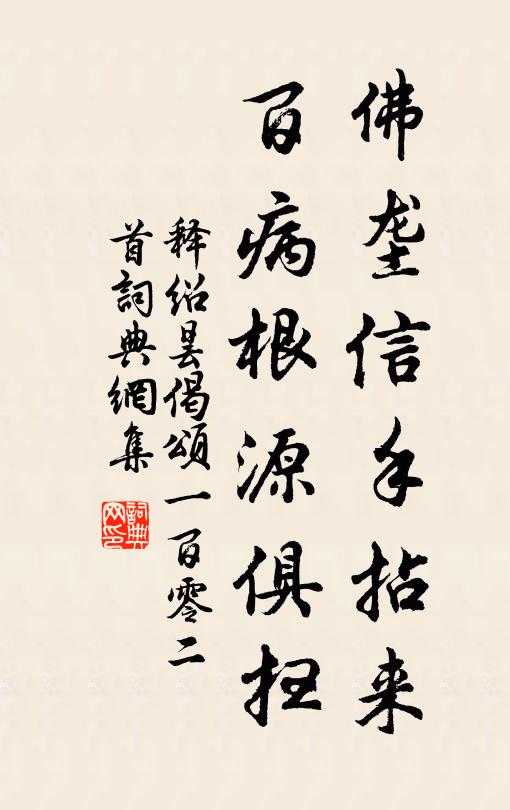 佛垄信手拈来
百病根源俱扫
释绍昙偈頌一百零二
首詞典網集
詞典
网印